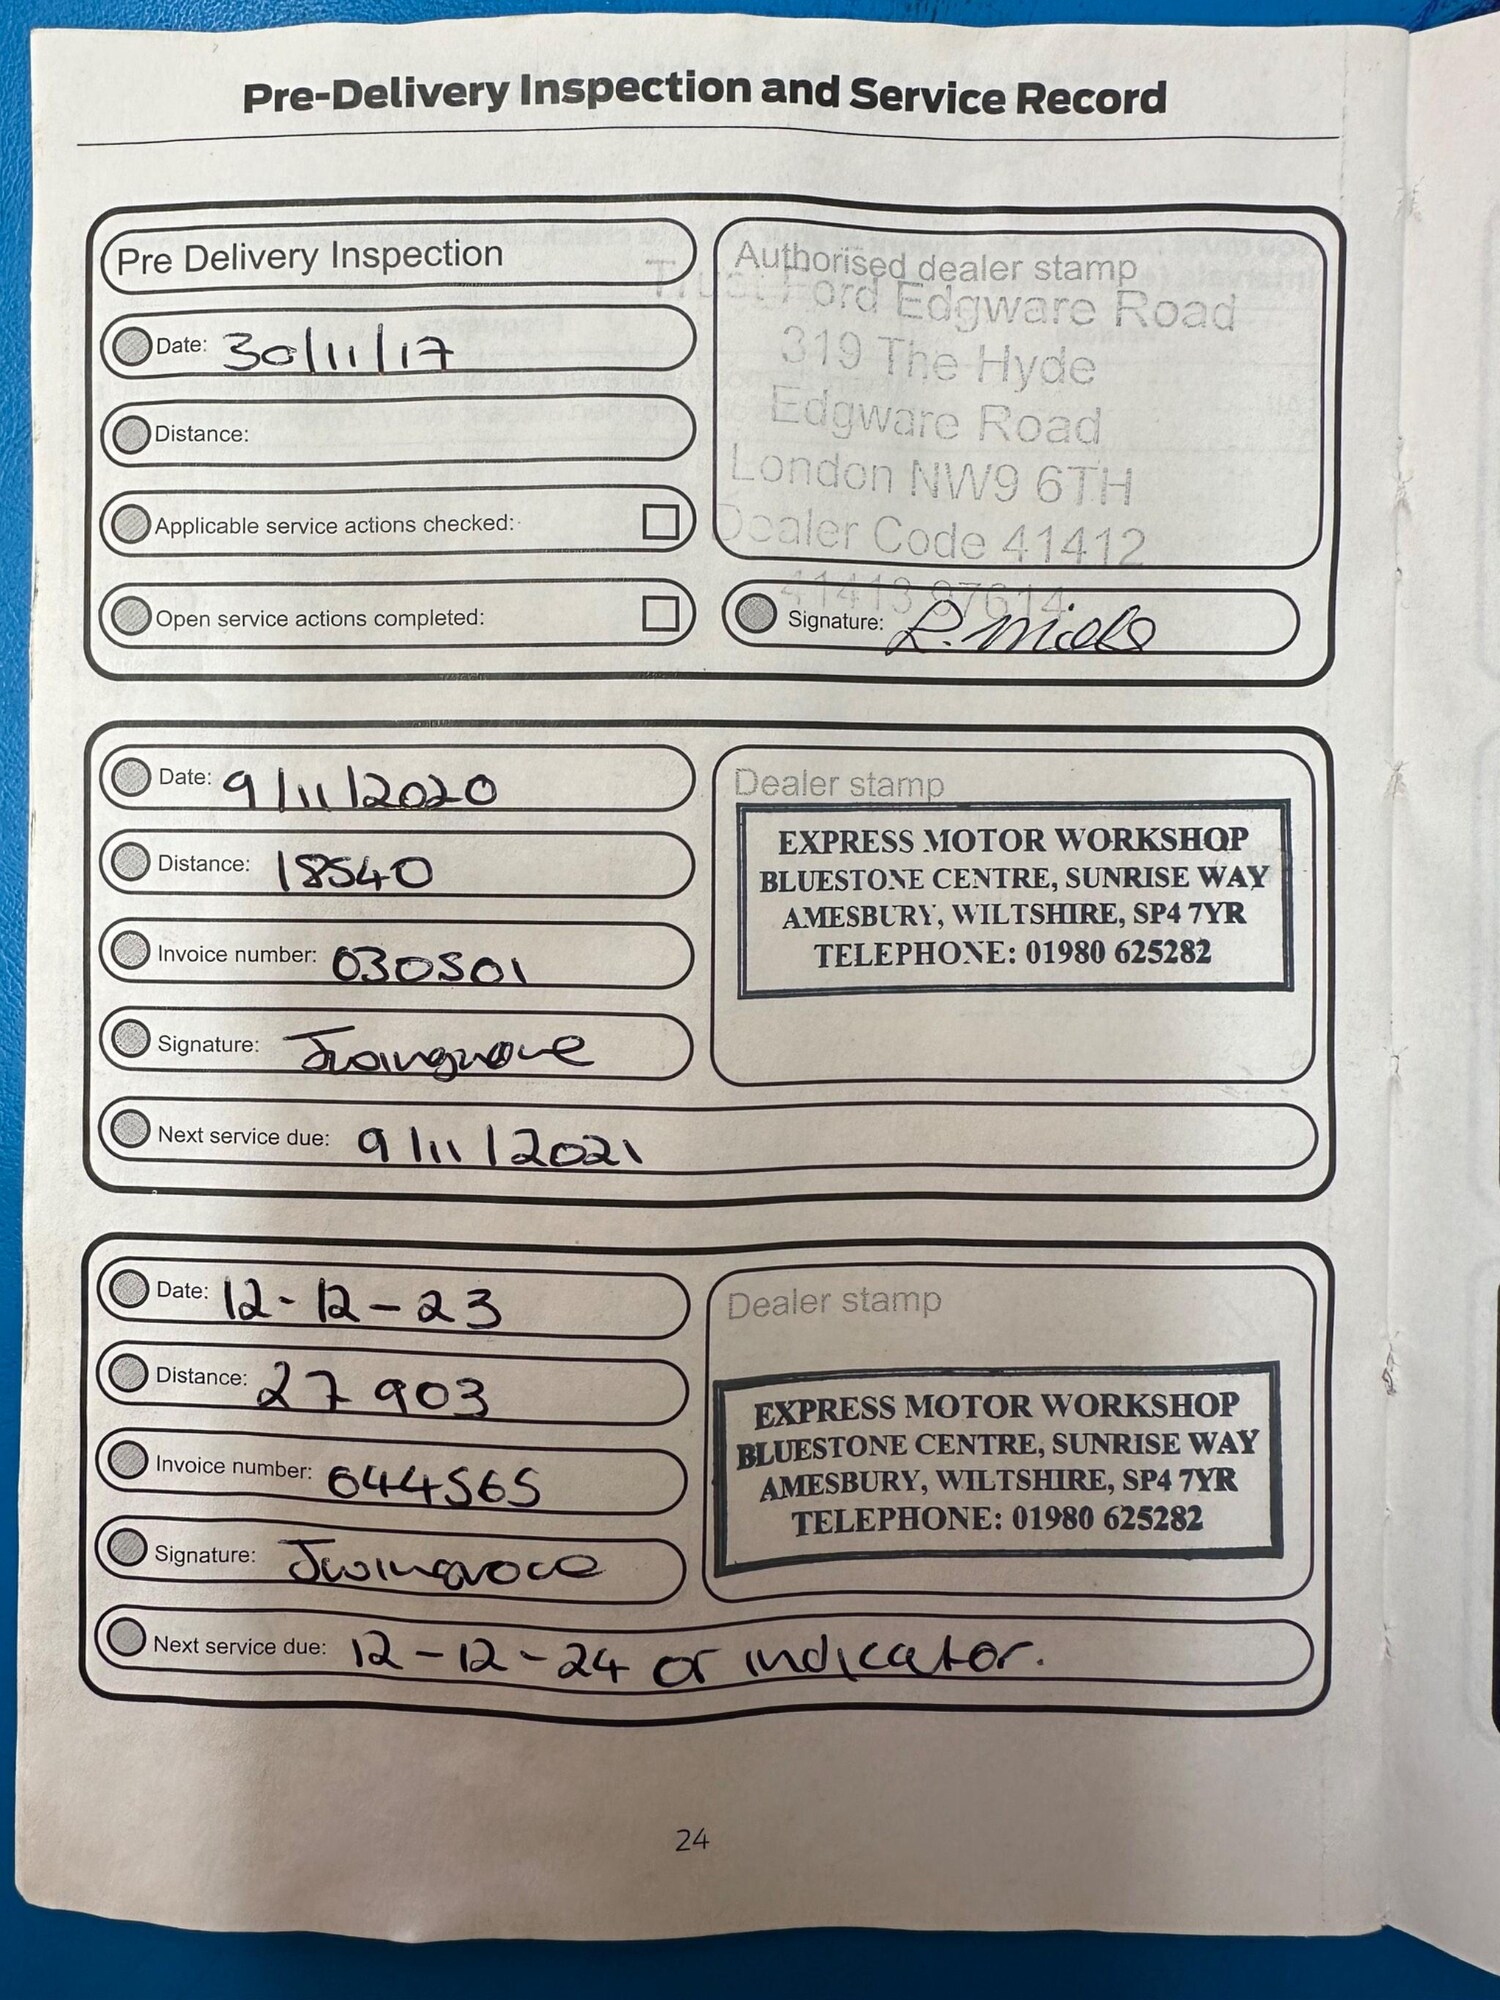 Pre-Delivery Inspection and Service Record
Pre Delivery Inspection
Date: 30/11/17
Distance:
Applicable service actions checked:
Open service actions completed:
Authorised dealer stamp
Trust Ford Edgware Road
319 The Hyde
Edgware Road
London NW9 6TH
Dealer Code 41412
Signature:
Date: 9/11/2020
Distance: 18540
Invoice number: 030501
Signature: Jwingrove
Next service due: 9/11/2021
Dealer stamp
EXPRESS MOTOR WORKSHOP
BLUESTONE CENTRE, SUNRISE WAY
AMESBURY, WILTSHIRE, SP4 7YR
TELEPHONE: 01980 625282
Date: 12-12-23
Distance: 27903
Invoice number: 044565
Signature: Jwingrove
Next service due: 12-12-24 or indicator.
Dealer stamp
EXPRESS MOTOR WORKSHOP
BLUESTONE CENTRE, SUNRISE WAY
AMESBURY, WILTSHIRE, SP4 7YR
TELEPHONE: 01980 625282
24